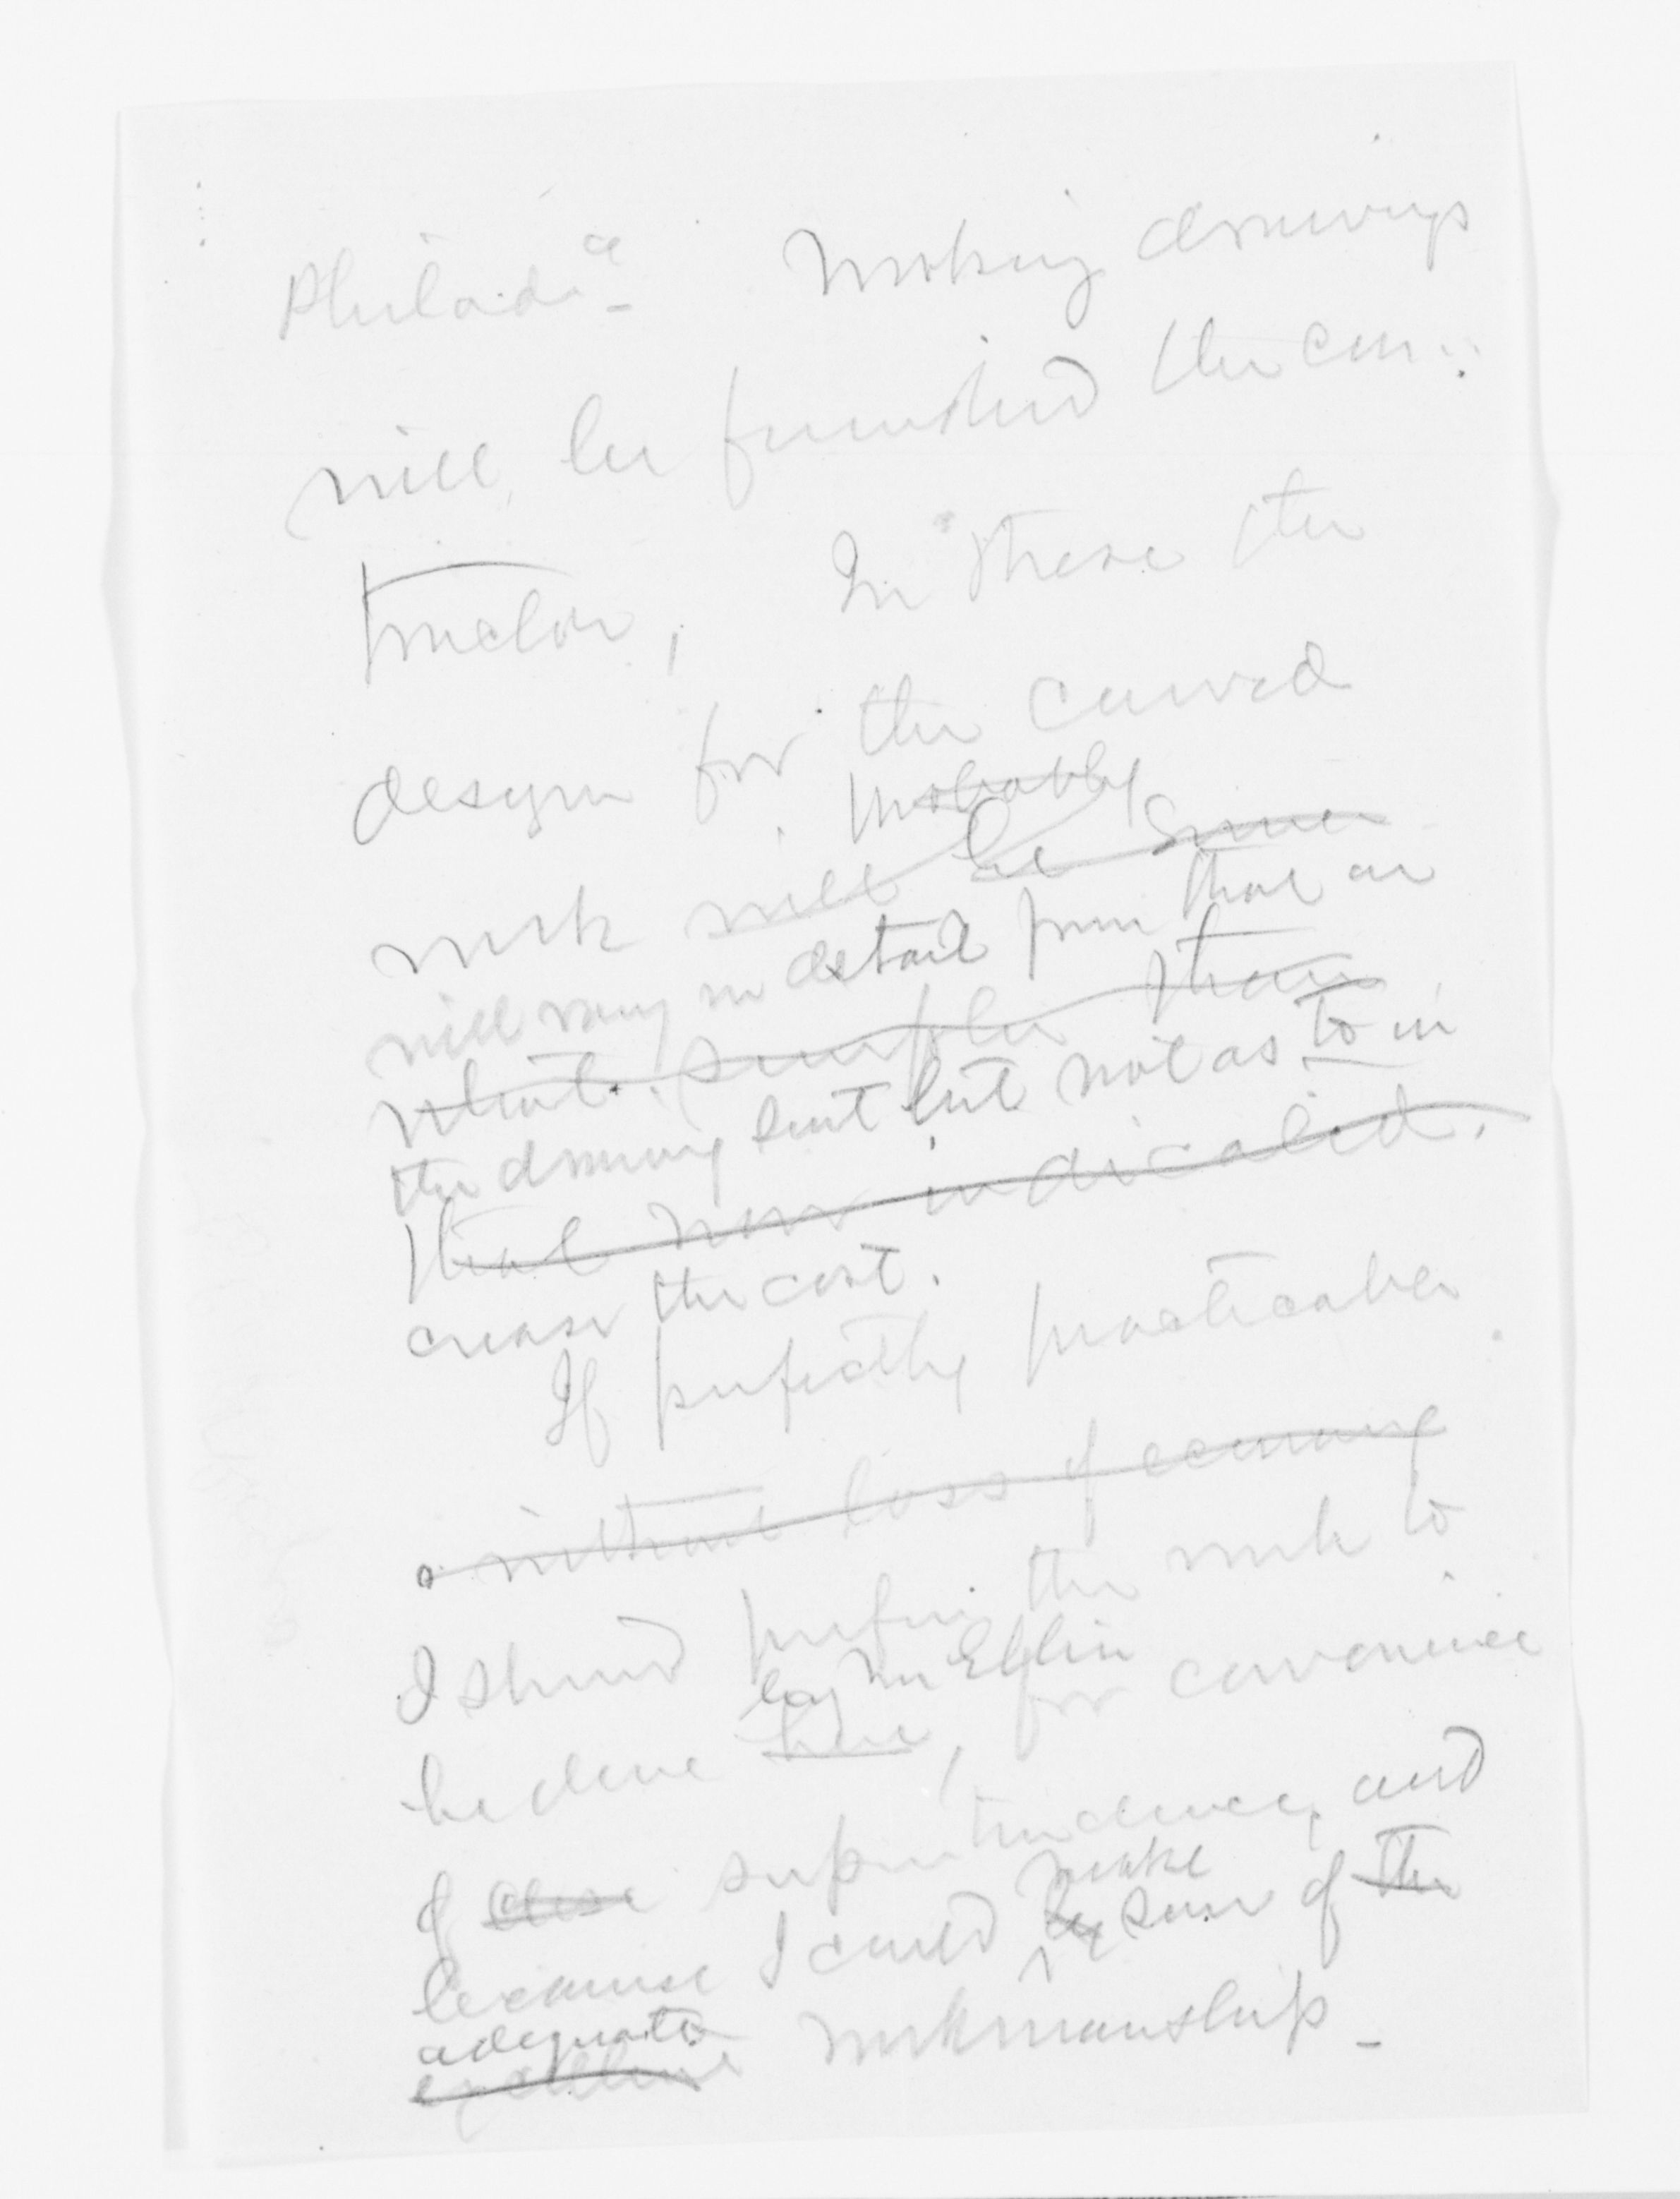 Philada. Working drawings
will be furnished the con-
tractor, In these the
design for the carved
probably
work will be some
will vary in detail from that on
what simpler than
the drawing sent but not as to in
that now indicated.
crease the cost.
If perfectly practicable
without loss of economy
I should prefer the work to
by Mr Eflin
be done here, for convenience
of close superintendence, and
make
because I could be sure of the
adequate
excellent workmanship -